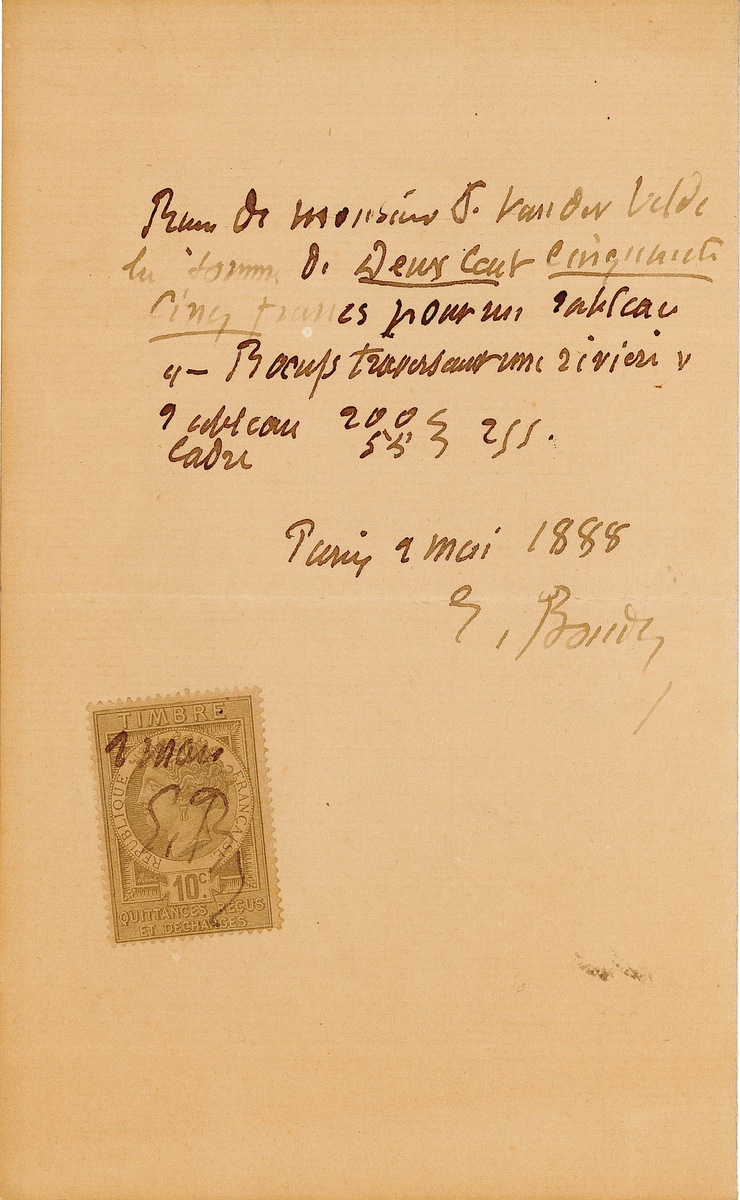 Reçu de monsieur S. Van der Velde
la somme de Deux Cent Cinquante
Cinq francs pour un tableau
"— Boeufs traversant une rivière"
Tableau 200
Cadre 55 } 255.
Paris 2 mai 1888
E. Boudin
TIMBRE
2 mai
RÉPUBLIQUE FRANÇAISE
E. B
10c.
QUITTANCES REÇUS
ET DÉCHARGES